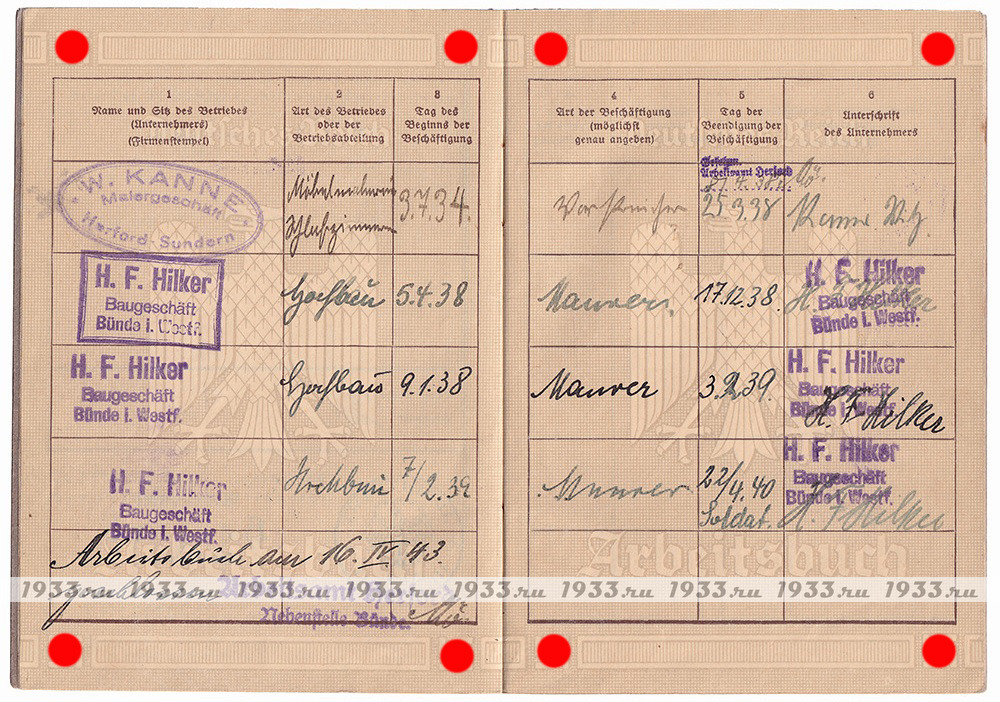 1
Name und Sitz des Betriebes
(Unternehmers)
(Firmenstempel)
2
Art des Betriebes
oder der
Betriebsabteilung
3
Tag des
Beginns der
Beschäftigung
4
Art der Beschäftigung
(möglichst
genau angeben)
5
Tag der
Beendigung der
Beschäftigung
6
Unterschrift
des Unternehmers
W. KANNE
Malergeschäft
Herford-Sundern
3.7.34.
Gesehen.
Arbeitsamt Herford
Vorstreicher
25.3.38
H. F. Hilker
Baugeschäft
Bünde i. Westf.
Hochbau
5.4.38
Maurer
17.12.38.
H. F. Hilker
Baugeschäft
Bünde i. Westf.
H. F. Hilker
H. F. Hilker
Baugeschäft
Bünde i. Westf.
Hochbau
9.1.38
Maurer
3.2.39.
H. F. Hilker
Baugeschäft
Bünde i. Westf.
H. F. Hilker
H. F. Hilker
Baugeschäft
Bünde i. Westf.
Hochbau
7/2.39
Maurer
22/4.40
Soldat.
H. F. Hilker
Baugeschäft
Bünde i. Westf.
H F Hilker
Arbeitsbuch am 16. IV 43
Arbeitsamt Herford
Nebenstelle Bünde.
Arbeitsbuch
1933.ru 1933.ru 1933.ru 1933.ru 1933.ru 1933.ru 1933.ru 1933.ru 1933.ru